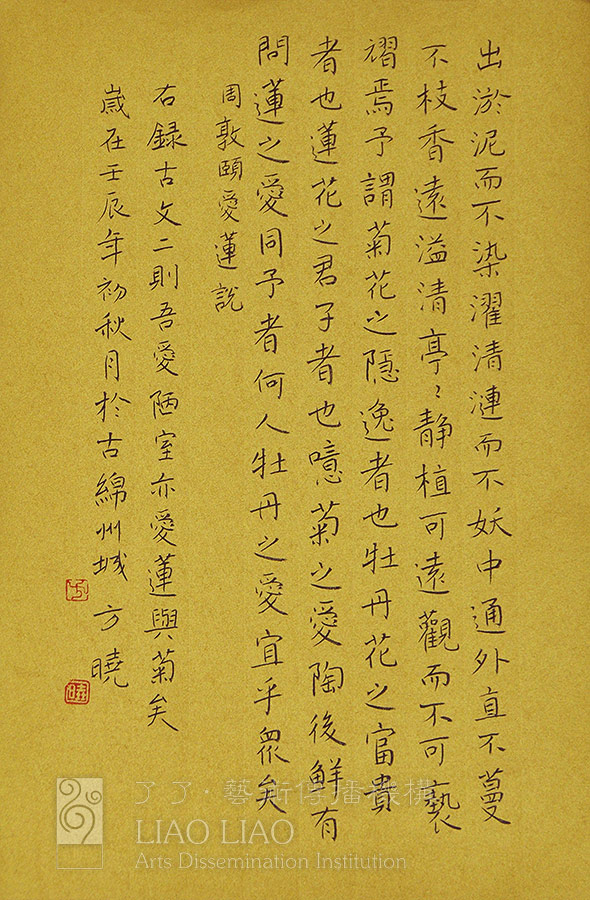 出淤泥而不染濯清漣而不妖中通外直不蔓
不枝香遠溢清亭〻靜植可遠觀而不可褻
褶焉予謂菊花之隱逸者也牡丹花之富貴
者也蓮花之君子者也噫菊之愛陶後鮮有
問蓮之愛同予者何人牡丹之愛宜乎眾矣
周敦頤愛蓮說
右録古文二則吾愛陋室亦愛蓮與菊矣
嵗在壬辰年初秋月於古綿州城方曉
了了·藝術傳播機構
LIAO LIAO
Arts Dissemination Institution